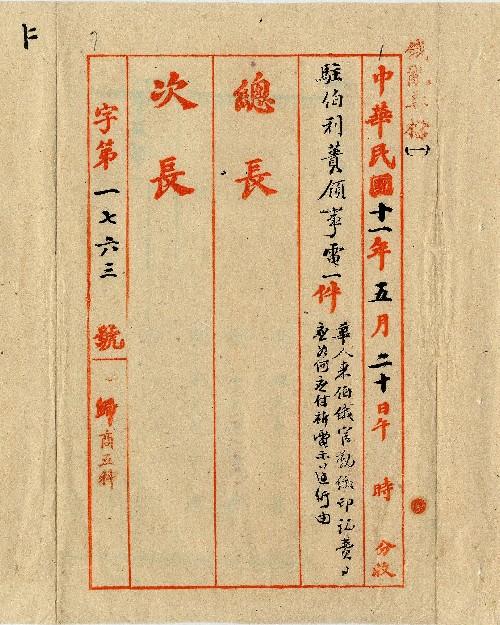 中華民國十一年五月二十日午 時 分收
駐伯利黃領事電一件
華人來伯俄官勒繳印証費
應如何應付祈電示遵衍由
總長
次長
字第一七六三號
歸商五科